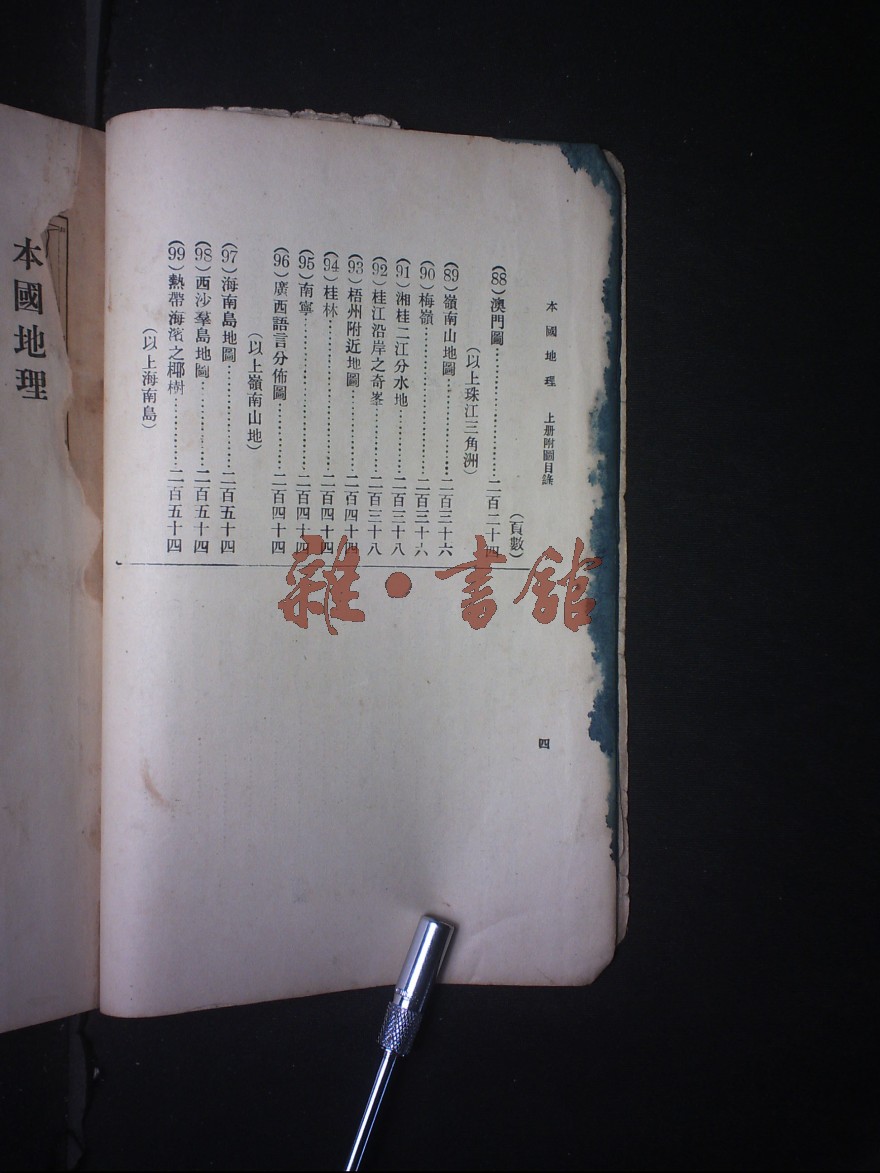 本國地理　上册附圖目錄
（頁數）
（88）澳門圖……………二百二十四
（以上珠江三角洲）
（89）嶺南山地圖……………二百三十六
（90）梅嶺……………二百三十六
（91）湘桂二江分水地……………二百三十八
（92）桂江沿岸之奇峯……………二百三十八
（93）梧州附近地圖……………二百四十四
（94）桂林……………二百四十四
（95）南寧……………二百四十四
（96）廣西語言分佈圖……………二百四十四
（以上嶺南山地）
（97）海南島地圖……………二百五十四
（98）西沙羣島地圖……………二百五十四
（99）熱帶海濱之椰樹……………二百五十四
（以上海南島）
四
本國地理
雜·書館